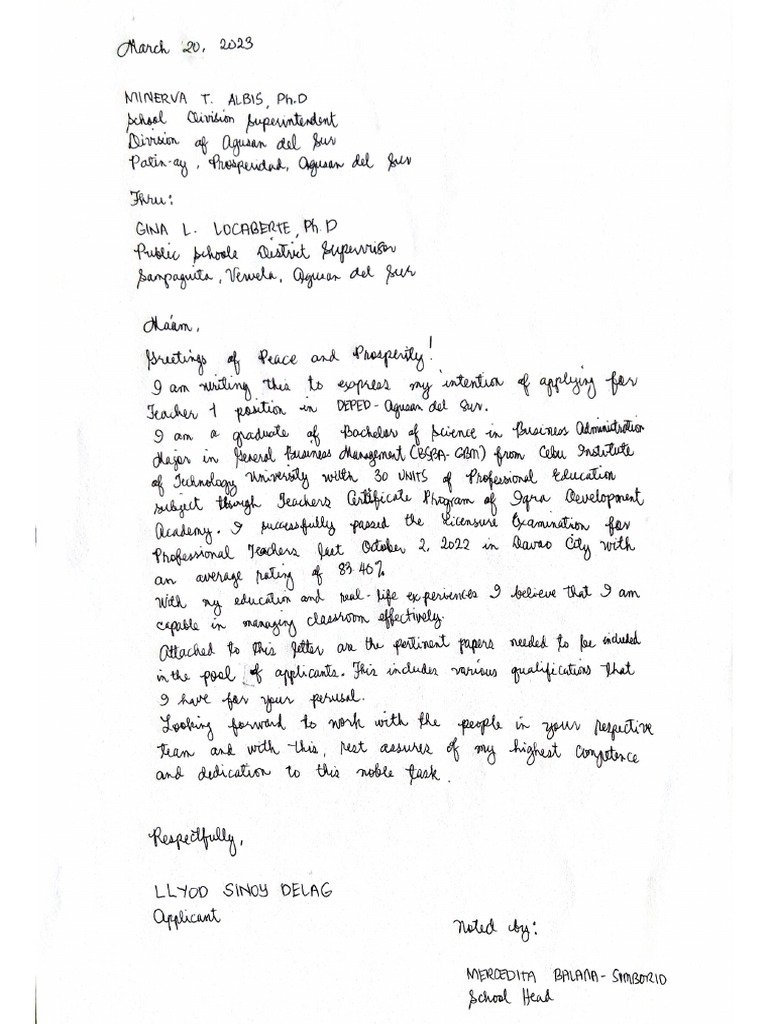 March 20, 2023
MINERVA T. ALBIS, Ph.D
School Division Superintendent
Division of Agusan del Sur
Patin-ay, Prosperidad, Agusan del Sur
Thru:
GINA L. LOCABERTE, Ph.D
Public Schools District Supervisor
Sampaguita, Veruela, Agusan del Sur
Ma'am,
Greetings of Peace and Prosperity!
I am writing this to express my intention of applying for
Teacher 1 position in DEPED-Agusan del Sur.
I am a graduate of Bachelor of Science in Business Administration
Major in General Business Management (BSBA-GBM) from Cebu Institute
of Technology University with 30 UNITS of Professional Education
subject through Teachers Certificate Program of Iqra Development
Academy. I successfully passed the Licensure Examination for
Professional Teachers last October 2, 2022 in Davao City with
an average rating of 83.40%
With my education and real-life experiences I believe that I am
capable in managing classroom effectively.
Attached to this letter are the pertinent papers needed to be included
in the pool of applicants. This includes various qualifications that
I have for your perusal.
Looking forward to work with the people in your respective
team and with this, rest assures of my highest competence
and dedication to this noble task.
Respectfully,
LLYOD SINOY DELAG
Applicant
Noted by:
MERCEDITA BALANA-SIMBORIO
School Head